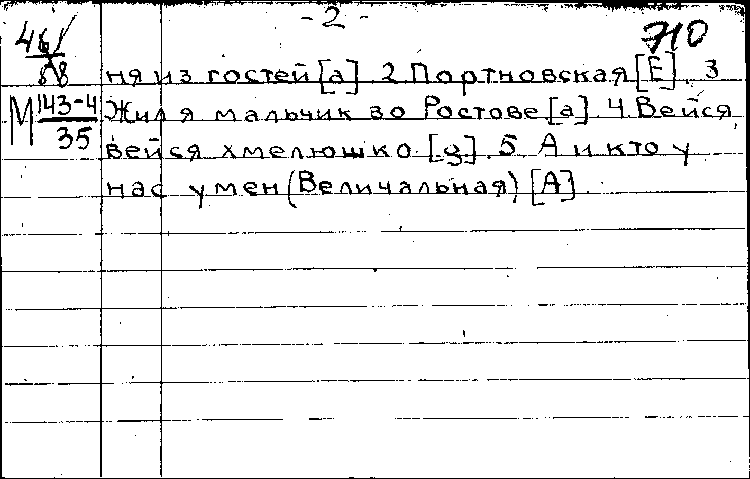 - 2 -
710
46
68
М 143-4
35
ня из гостей [а] 2 Портновская [Е]. 3
Жил я мальчик во Ростове [а]. 4 Вейся,
вейся хмелюшко [g]. 5 А и кто у
нас умен (Величальная) [А].